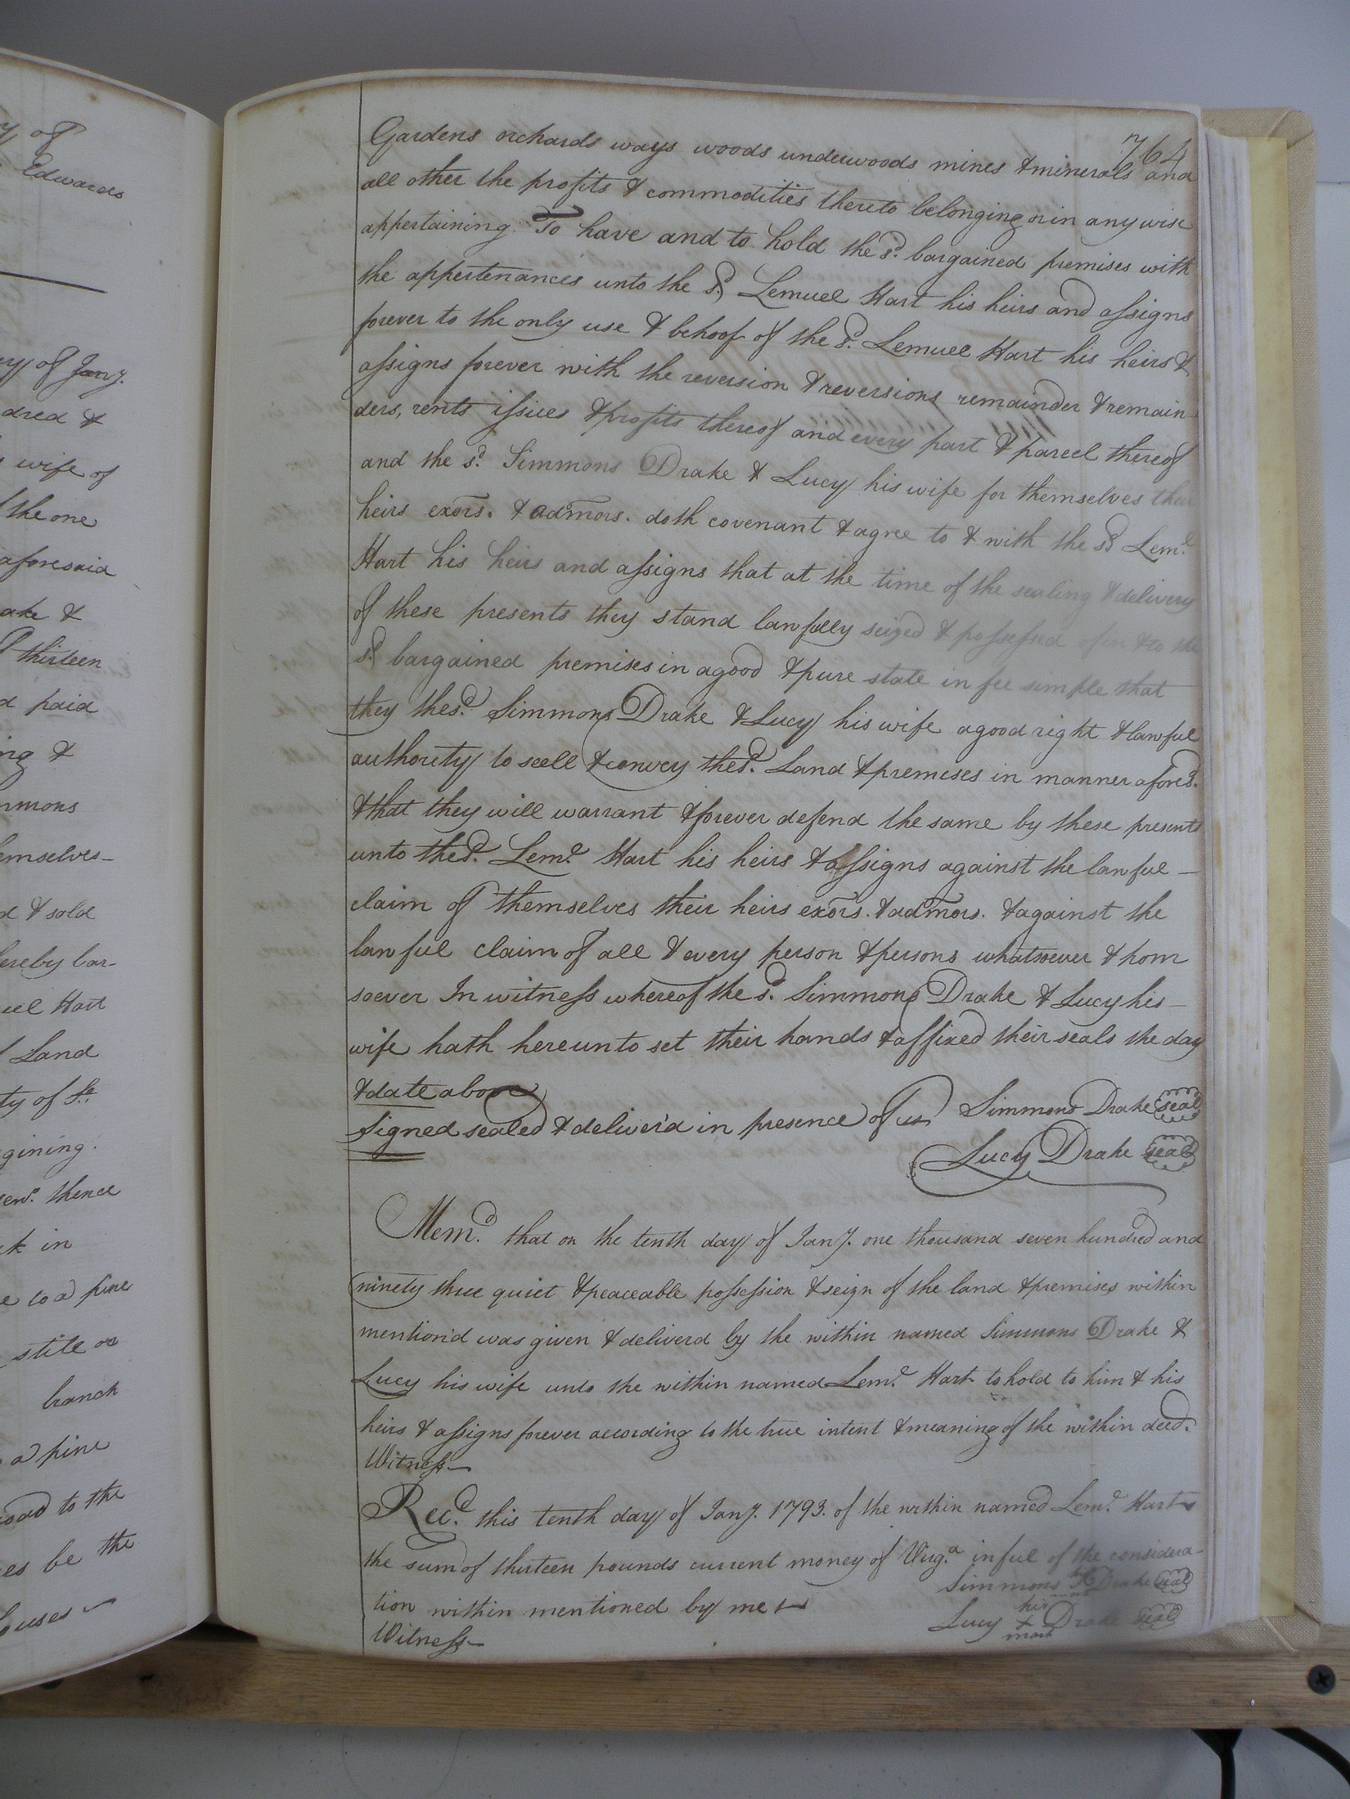 y of
Edwards
ry of Jany.
dred &
wife of
the one
aforesaid
ake &
thirteen
d paid
ing &
mmons
emselves
d & sold
hereby bar-
uel Hart
Land
ty of
gining.
thence
k in
e to a pine
stile or
branch
a pine
road to the
es be the
houses
764
Gardens orchards ways woods underwoods mines & minerals and
all other the profits & commodities thereto belonging or in any wise
appertaining. To have and to hold the sd. bargained premises with
the appertenances unto the sd. Lemuel Hart his heirs and assigns
forever to the only use & behoof of the sd. Lemuel Hart his heirs &
assigns forever with the reversion & reversions remainder & remain
ders, rents issues & profits thereof and every part & parcel thereof
and the sd. Simmons Drake & Lucy his wife for themselves their
heirs exors. & admors. doth covenant & agree to & with the sd Leml.
Hart his heirs and assigns that at the time of the sealing & delivery
of these presents they stand lawfully seized & possessed of in & to the
sd. bargained premises in a good & pure state in fee simple that
they the sd. Simmons Drake & Lucy his wife a good right & lawful
authority to sell & convey the sd. Land & premises in manner aforesd.
& that they will warrant & forever defend the same by these presents
unto the sd. Leml. Hart his heirs & assigns against the lawful
claim of themselves their heirs exors. & admors. & against the
lawful claim of all & every person & persons whatsoever & hom
soever In witness whereof the sd. Simmons Drake & Lucy his
wife hath hereunto set their hands & affixed their seals the day
& date above
Signed sealed & deliver'd in presence of us Simmons Drake seal
Lucy Drake seal
Memd. that on the tenth day of Jany. one thousand seven hundred and
ninety three quiet & peaceable possession & seign of the land & premises within
mention'd was given & deliver'd by the within named Simmons Drake &
Lucy his wife unto the within named Leml. Hart to hold to him & his
heirs & assigns forever according to the true intent & meaning of the within deed.
Witness
Recd. this tenth day of Jany. 1793. of the within named Leml. Hart
the sum of thirteen pounds current money of Virga. in ful of the considera-
tion within mentioned by me
Simmons Drake seal
Lucy her + mark Drake seal
Witness